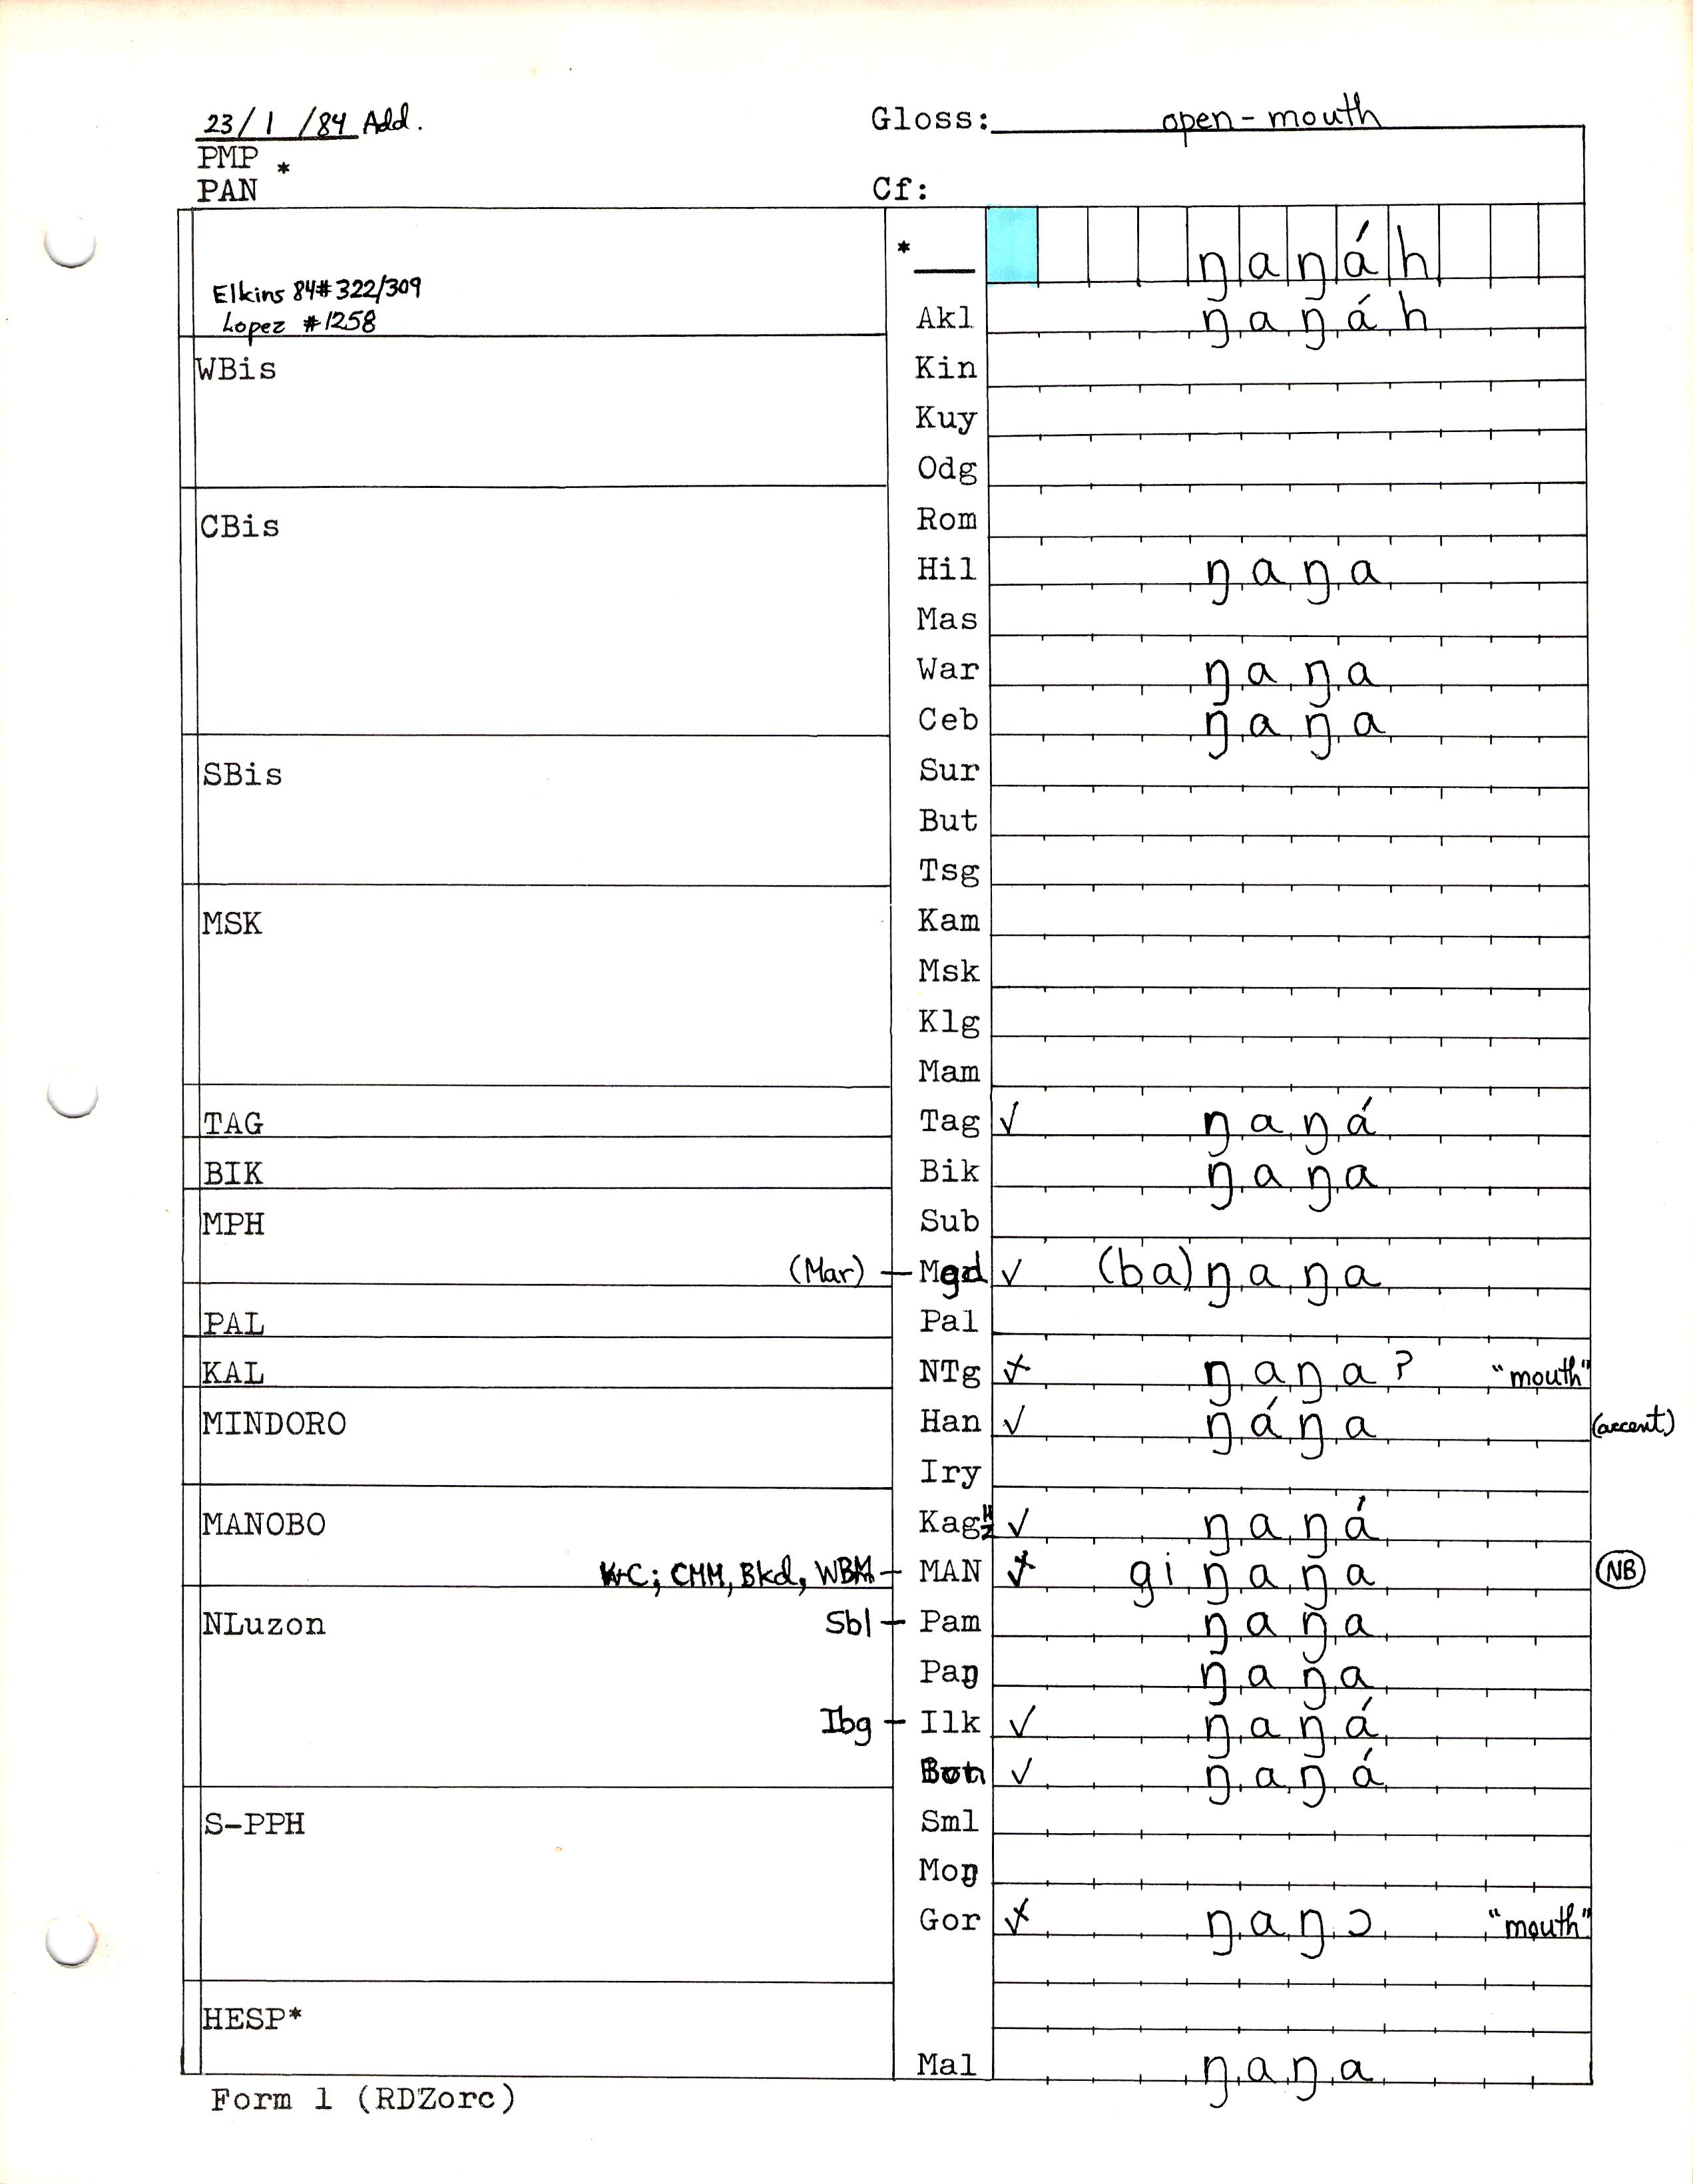 23/1/84 Add. Gloss: open-mouth
PMP *
PAN Cf:
* ŋaŋáh
Elkins 84#322/309
Lopez #1258
Akl ŋaŋáh
WBis Kin
Kuy
Odg
CBis Rom
Hil ŋaŋa
Mas
War ŋaŋa
Ceb ŋaŋa
SBis Sur
But
Tsg
MSK Kam
Msk
Klg
Mam
TAG Tag ✓ ŋaŋá
BIK Bik ŋaŋa
MPH Sub
(Mar) — Mgd ✓ (ba)ŋaŋa
PAL Pal
KAL NTg ŋaŋaʔ "mouth"
MINDORO Han ✓ ŋáŋa (accent)
Iry
MANOBO Kag ✓ ŋaŋá
K-C; CMM, Bkd, WBM — MAN giŋaŋa NB
NLuzon Sbl — Pam ŋaŋa
Paŋ ŋaŋa
Ibg — Ilk ✓ ŋaŋá
✓ ŋaŋá
S-PPH Sml
Moŋ
Gor ŋaŋɔ "mouth"
HESP*
Mal ŋaŋa
Form 1 (RDZorc)